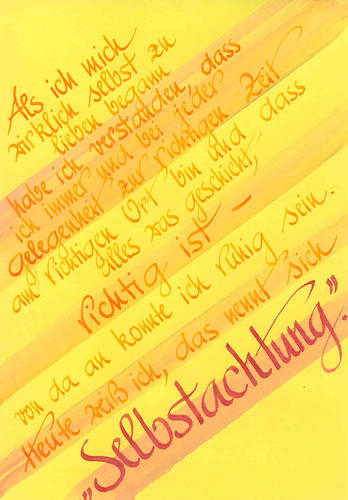 Als ich mich
wirklich selbst zu
lieben begann
habe ich verstanden, dass
ich immer und bei jeder
gelegenheit zur richtigen Zeit
am richtigen Ort bin und dass
alles was geschieht,
richtig ist –
von da an konnte ich ruhig sein.
Heute weiß ich, das nennt sich
„Selbstachtung".